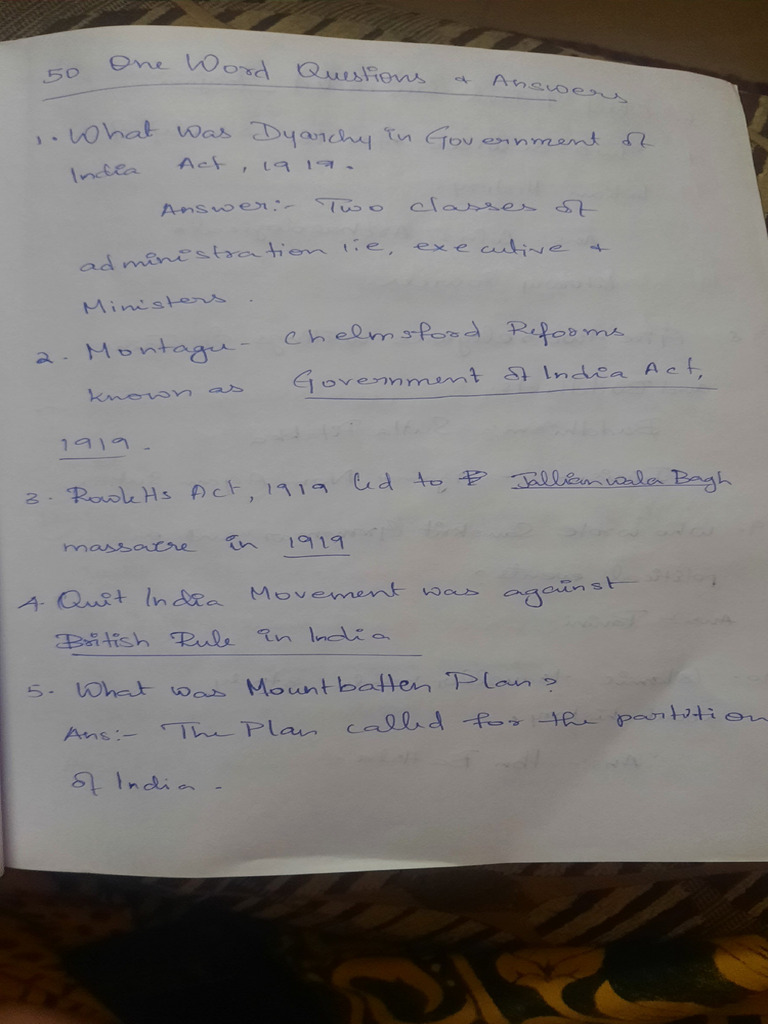 50 One Word Questions & Answers
1. What was Dyarchy in Government of
India Act, 1919.
Answer:- Two classes of
administration i.e, executive &
Ministers.
2. Montagu- Chelmsford Reforms
known as Government of India Act,
1919.
3. Rowlatts Act, 1919 led to Jallianwala Bagh
massacre in 1919
4. Quit India Movement was against
British Rule in India
5. What was Mountbatten Plan?
Ans:- The Plan called for the partition
of India.